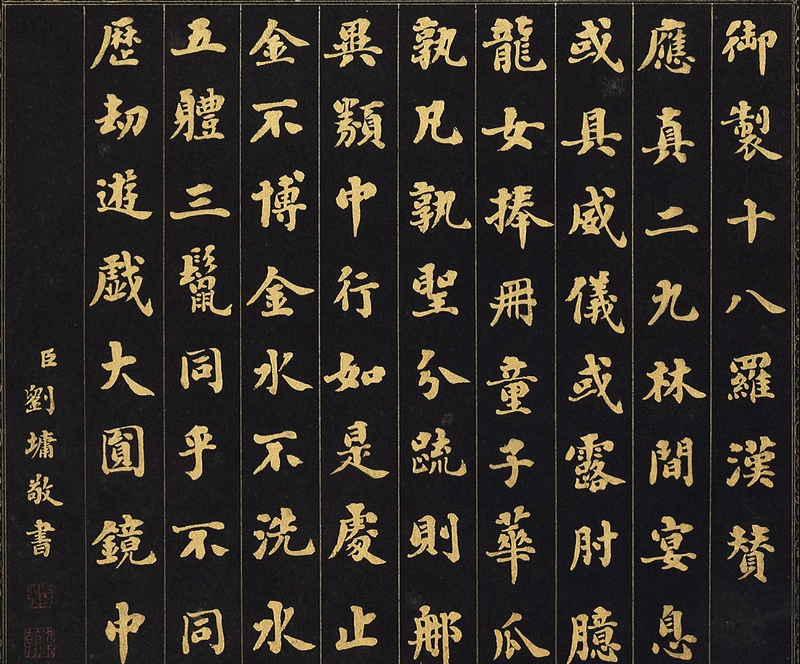 御製十八羅漢贊
應真二九林間宴息
或具威儀或露肘臆
龍女捧冊童子華瓜
孰凡孰聖分疏則那
異類中行如是處止
金不博金水不洗水
五體三鬣同乎不同
歷劫遊戲大圓鏡中
臣劉墉敬書